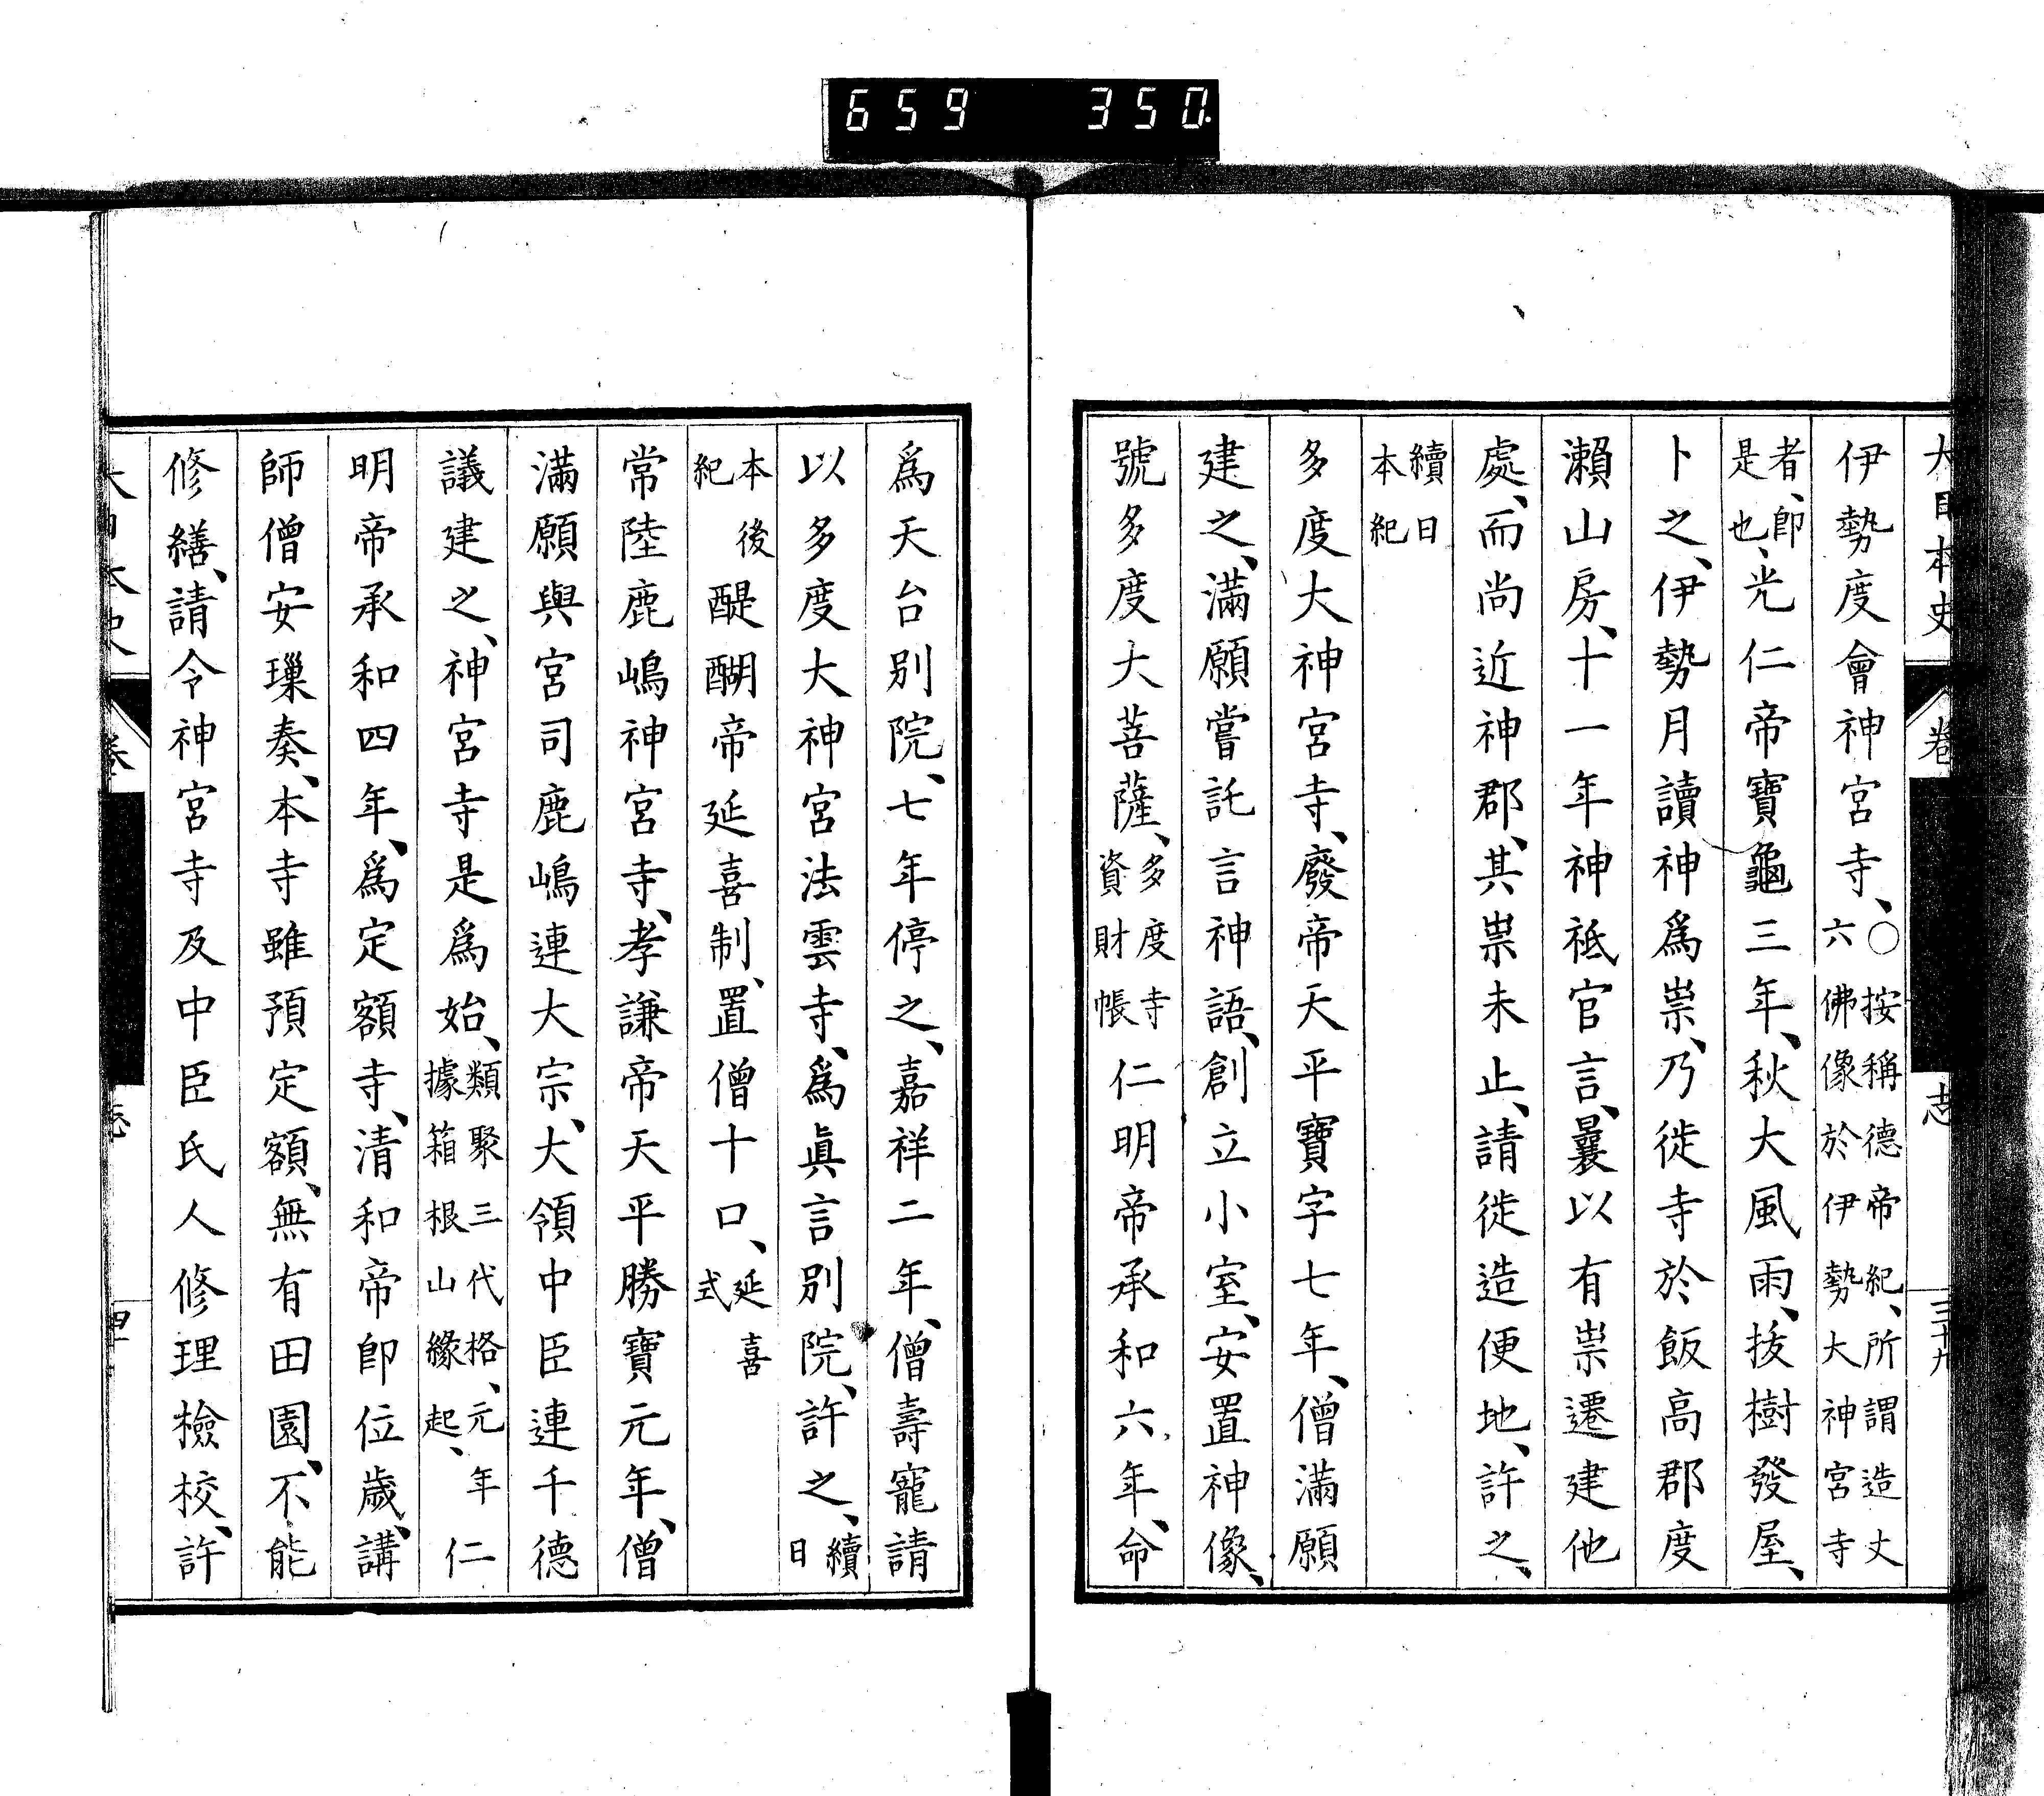 659 350.
大日本史 卷 志 三十九
伊勢度會神宮寺、○按稱德帝紀、所謂造丈六佛像於伊勢大神宮寺
者、卽是也、光仁帝寶龜三年、秋大風雨、拔樹發屋、
卜之、伊勢月讀神爲祟、乃徙寺於飯高郡度
瀨山房、十一年神祇官言、曩以有祟遷建他
處、而尚近神郡、其祟未止、請徙造便地、許之、
續日本紀
多度大神宮寺、廢帝天平寶字七年、僧滿願
建之、滿願嘗託言神語、創立小室、安置神像、
號多度大菩薩、多度寺資財帳仁明帝承和六年、命
爲天台別院、七年停之、嘉祥二年、僧壽寵請
以多度大神宮法雲寺、爲眞言別院、許之、續日
本後紀醍醐帝延喜制、置僧十口、延喜式
常陸鹿嶋神宮寺、孝謙帝天平勝寶元年、僧
滿願與宮司鹿嶋連大宗、大領中臣連千德
議建之、神宮寺是爲始、類聚三代格、元年據箱根山緣起、仁
明帝承和四年、爲定額寺、清和帝卽位歲、講
師僧安璅奏、本寺雖預定額、無有田園、不能
修繕、請令神宮寺及中臣氏人修理檢校、許